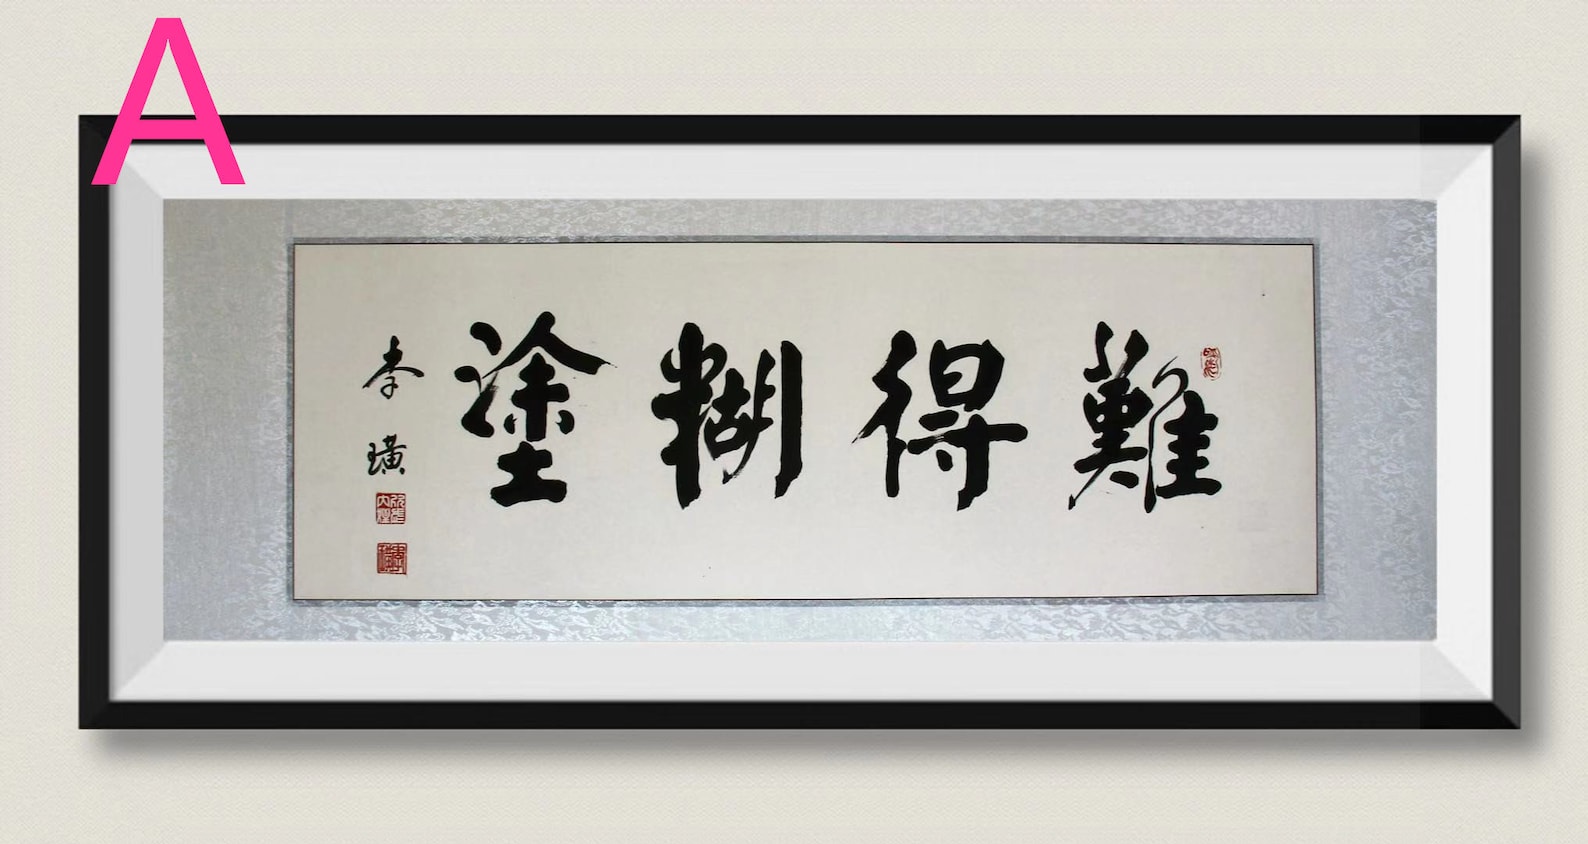 A
難得糊塗
李璜